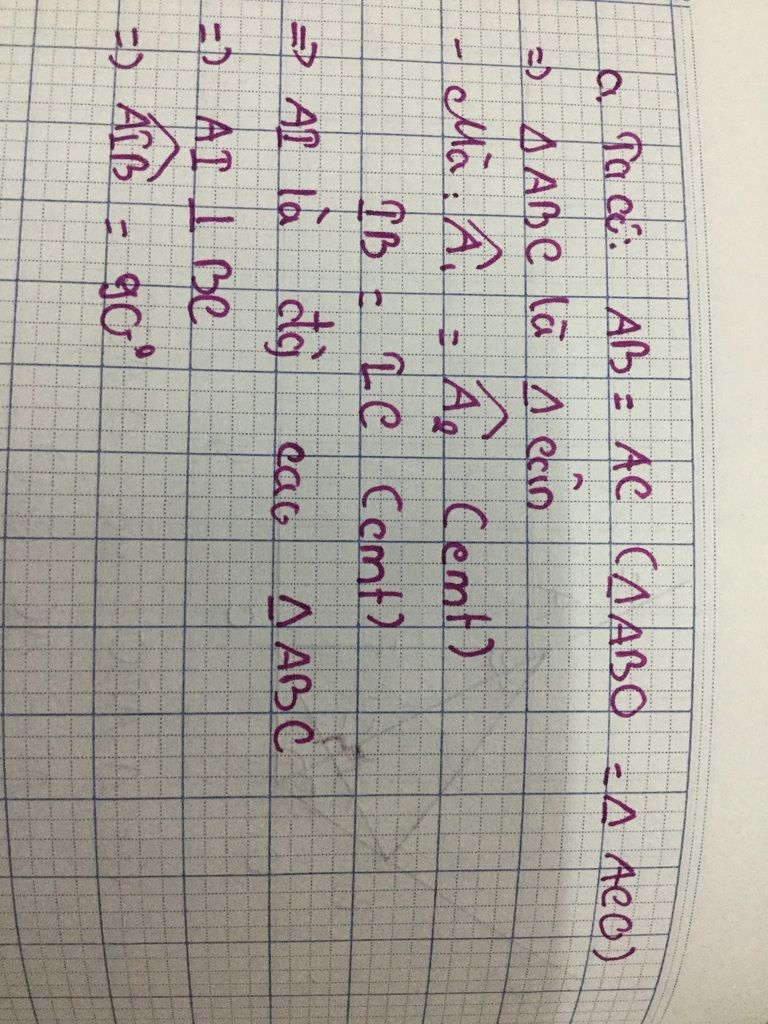 a. Ta có: AB = AC (Δ ABO = Δ ACO)
=> Δ ABC là Δ cân
- Mà: Â₁ = Â₂ (cmt)
IB = IC (cmt)
=> AI là đg̀ cao Δ ABC
=> AI ⊥ BC
=> AIB̂ = 90°